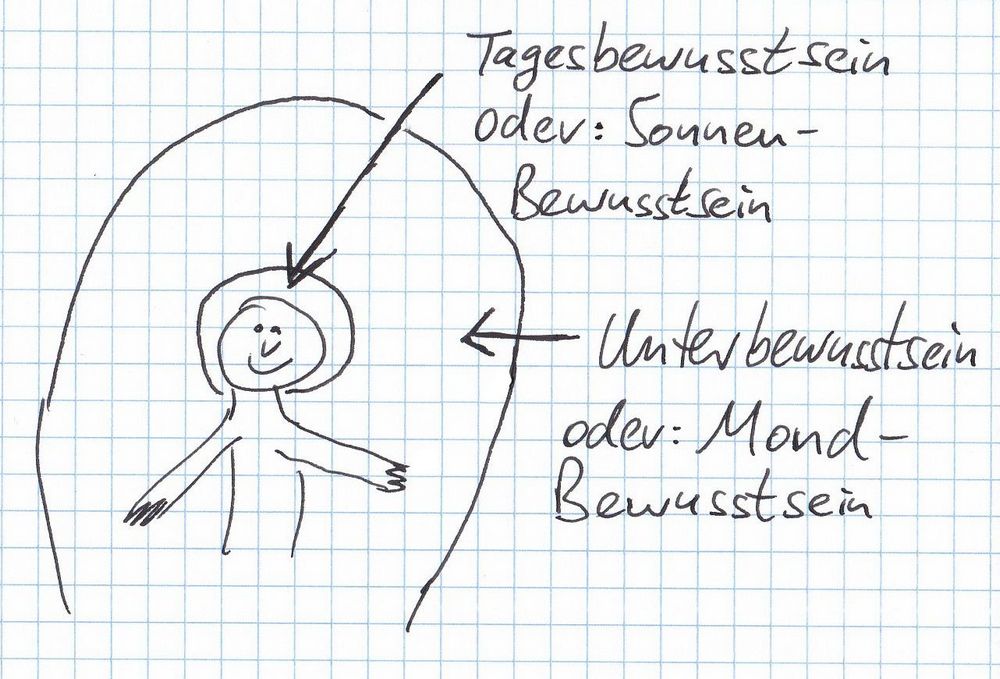 Tagesbewusstsein
oder: Sonnen-
Bewusstsein
Unterbewusstsein
oder: Mond-
Bewusstsein